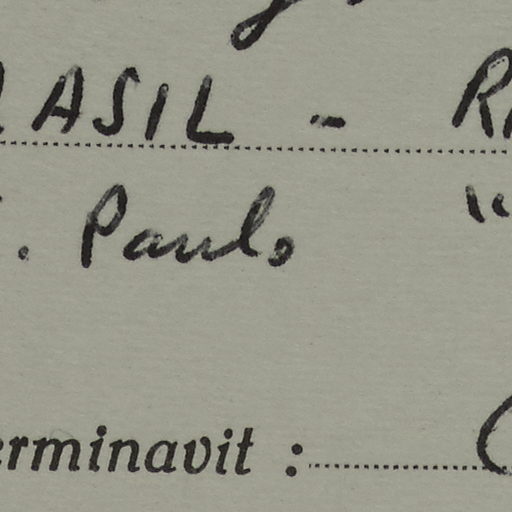 ASIL -
. Paulo "
erminavit :